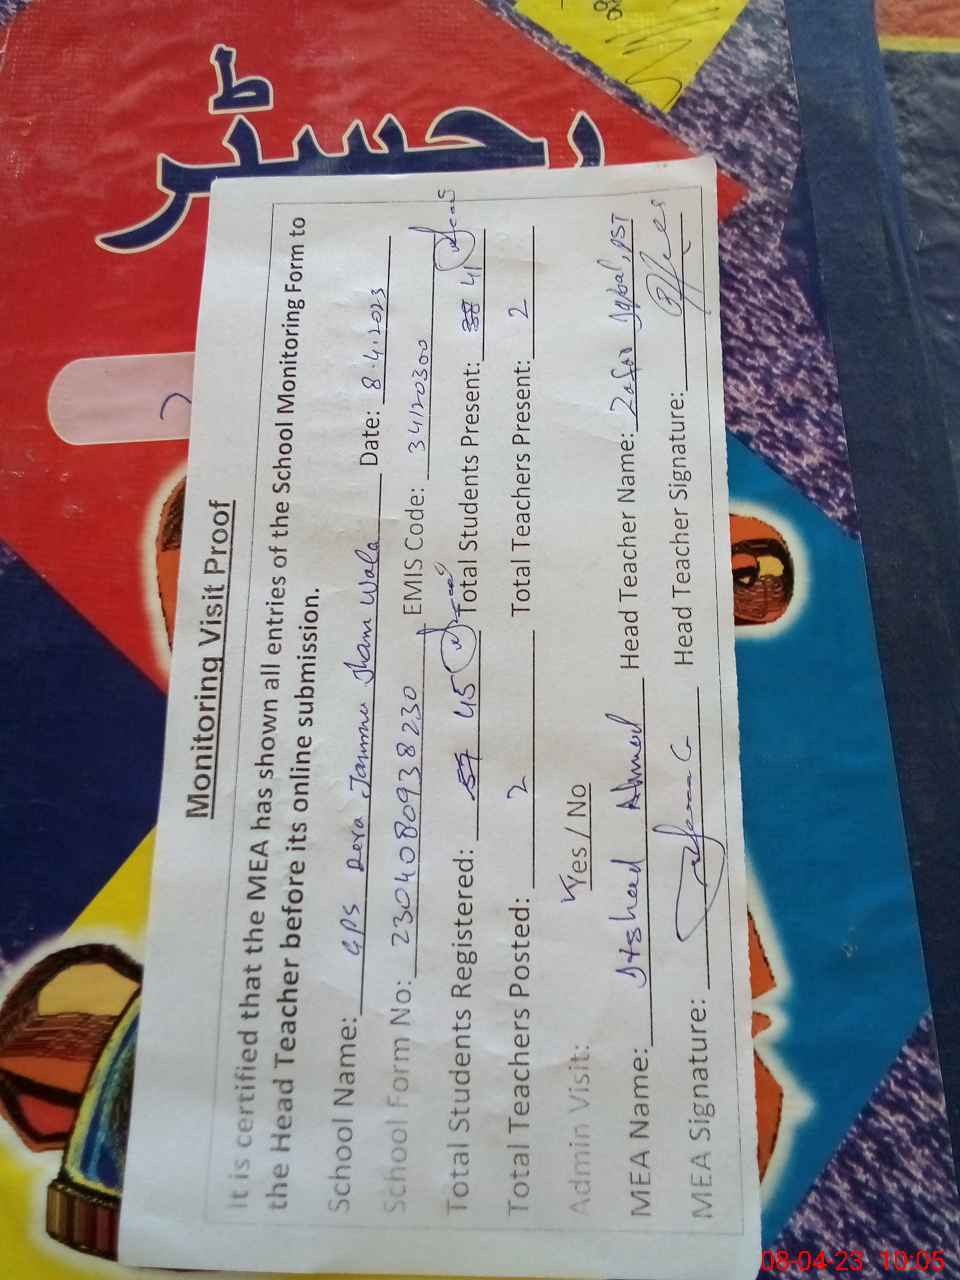 رجسٹر
Monitoring Visit Proof
It is certified that the MEA has shown all entries of the School Monitoring Form to
the Head Teacher before its online submission.
School Name: GPS Dera Jamma Jham Wala Date: 8.4.2023
School Form No: 230408093 8230 EMIS Code: 34120300
Total Students Registered: 57 45 Total Students Present: 38 41
Total Teachers Posted: 2 Total Teachers Present: 2
Admin Visit: Yes / No
MEA Name: Irshad Ahmed Head Teacher Name: Zafar Iqbal, PST
MEA Signature: Head Teacher Signature:
08-04-23 10:05